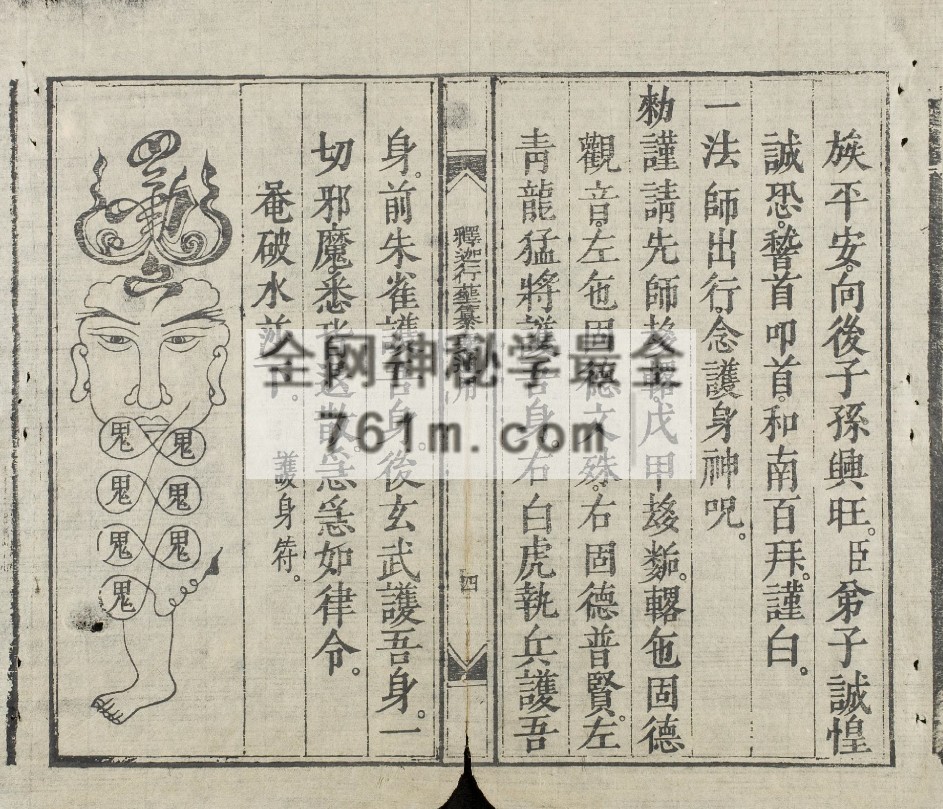 族平安。向後子孫興旺。臣弟子誠惶
誠恐。稽首叩首。和南百拜。謹白。
一法師出行。念護身神呪。
勑謹請先師 戊甲 㐌固德
觀音。左㐌固德文殊。右固德普賢。左
青龍猛將護吾身。右白虎執兵護吾
釋迦行藝纂
四
身。前朱雀護吾身。後玄武護吾身。一
切邪魔。悉皆退散。急急如律令。
菴破水
護身符。
鬼 鬼
鬼 鬼
鬼 鬼
鬼
全网神秘学最全
761m.com